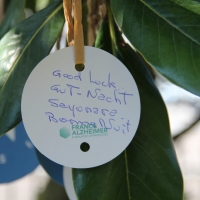 Good Luck
GuT-Nacht
Sayonara
FRANCE
ALZHEIMER